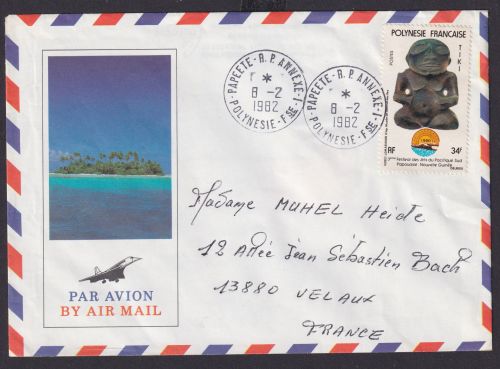 PAPEETE-R.P. ANNEXE-1
*
8-2
1982
POLYNESIE-FSE-
PAPEETE-R.P. ANNEXE-1
*
8-2
1982
POLYNESIE-FSE-
POLYNESIE FRANCAISE
POSTES
TIKI
1980
RF
34f
3ème Festival des Arts du Pacifique Sud
Papouasie - Nouvelle Guinée
DELRIEU
Madame MUHEL Heide
12 Allée Jean Sébastien Bach
13880 VELAUX
FRANCE
PAR AVION
BY AIR MAIL